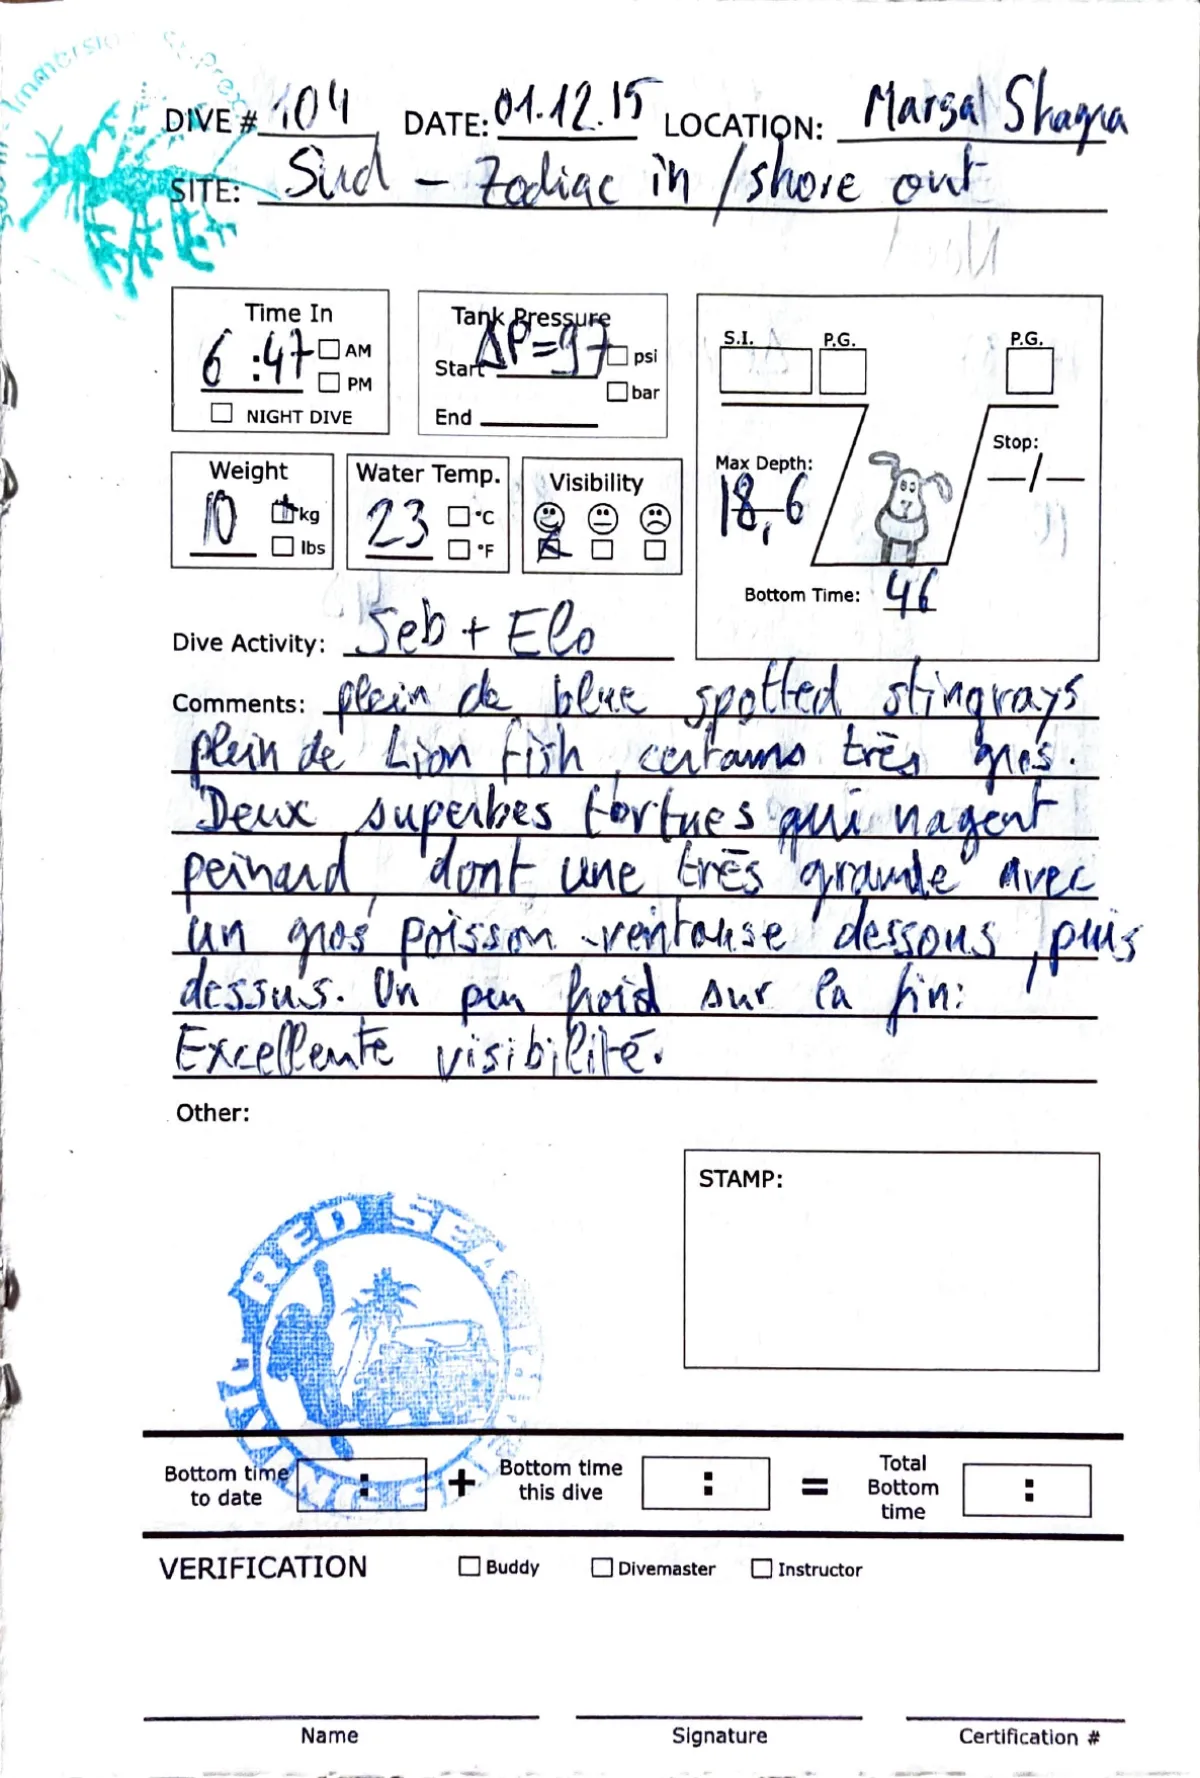 Immersion St. Prex
DIVE # 104 DATE: 01.12.15 LOCATION: Marsa Shagra
SITE: Sud - Zodiac in / shore out
Time In
6 :47 AM
PM
NIGHT DIVE
Tank Pressure
ΔP=97 psi
Start
bar
End
S.I. P.G. P.G.
Stop:
/
Max Depth:
18,6
Bottom Time: 46
Weight
10 kg
lbs
Water Temp.
23 °C
°F
Visibility
Dive Activity: Seb + Elo
Comments: plein de blue spotted stingrays
plein de Lion fish, certains très gros.
Deux superbes tortues qui nagent
peinard, dont une très grande avec
un gros poisson-ventouse dessous, puis
dessus. Un peu froid sur la fin.
Excellente visibilité.
Other:
STAMP:
RED SEA
Bottom time
to date : + Bottom time
this dive : = Total
Bottom
time :
VERIFICATION Buddy Divemaster Instructor
Name Signature Certification #